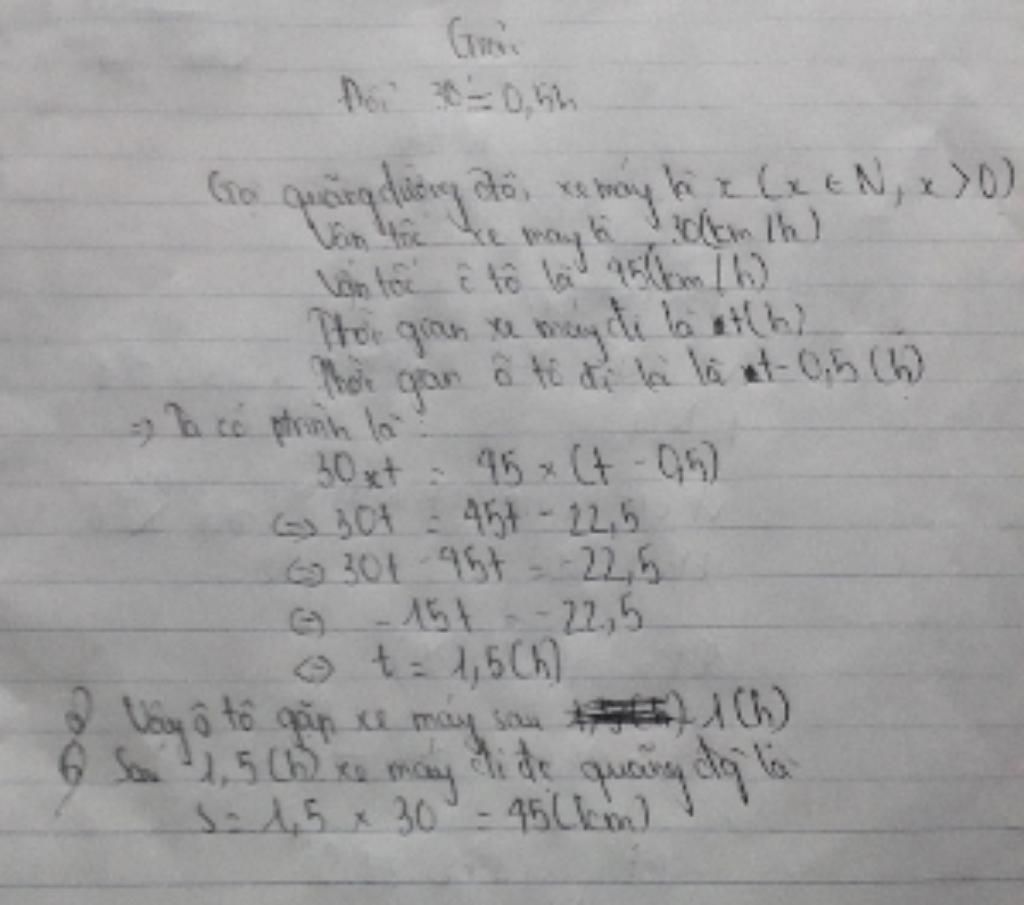 Giải
Đổi 30' = 0,5h
Gọi quãng đường ôtô, xe máy là x (x ∈ N, x > 0)
Vận tốc xe máy là 30(km/h)
Vận tốc ô tô là 45(km/h)
Thời gian xe máy đi là t(h)
Thời gian ô tô đi là là t - 0,5 (h)
=> Ta có ptrình là :
30 x t = 45 x (t - 0,5)
<=> 30t = 45t - 22,5
<=> 30t - 45t = -22,5
<=> -15t = -22,5
<=> t = 1,5(h)
a) Vậy ô tô gặp xe máy sau 1(h)
b) Sau 1,5(h) xe máy đi đc quãng đg là
s = 1,5 x 30 = 45(km)